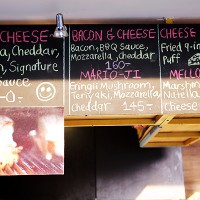 CHEESE
Cheddar,
Signature
Sauce
BACON & CHEESE
Bacon, BBQ Sauce,
Mozzarella, Cheddar
160.-
MARIO-JI
Eringii Mushroom,
Teriyaki, Mozzarella,
Cheddar 145.-
CHEESE
Fried
Puff
MELLO
Marsh
Cheese